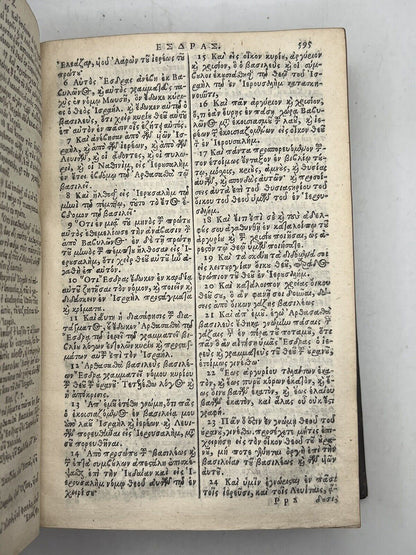 ΕΣΔΡΑΣ. 595
Ἐλεάζαρ, υἱοῦ Ἀαρὼν τοῦ ἱερέως τοῦ
πρώτου
6 Αὐτὸς Ἔσδρας ἀνέβη ἐκ Βα-
βυλῶνος, καὶ αὐτὸς γραμματεὺς ταχὺς
ἐν νόμῳ Μωυσῆ, ὃν ἔδωκε κύριος
ὁ Θεὸς Ἰσραήλ. καὶ ἔδωκεν αὐτῷ ὁ
βασιλεὺς, ὅτι χεὶρ κυρίου Θεοῦ αὐτοῦ
ἐπ' αὐτὸν ἐν πᾶσιν οἷς ἐζήτει αὐτός.
7 Καὶ ἀνέβησαν ἀπὸ τῶν υἱῶν Ἰσ-
ραὴλ, καὶ ἀπὸ τῶν ἱερέων, καὶ ἀπὸ τῶν
Λευιτῶν, καὶ οἱ ᾄδοντες, καὶ οἱ πυλω-
ροὶ, καὶ οἱ Ναθινὶμ, εἰς Ἱερουσαλὴμ
ἐν ἔτει ἑβδόμῳ τῷ Ἀρθασασθὰ τῷ
βασιλεῖ.
8 Καὶ ἤλθοσαν εἰς Ἱερουσαλὴμ τῷ
μηνὶ τῷ πέμπτῳ, τοῦτο τὸ ἔτος ἕ-
βδομον τῷ βασιλεῖ.
9 Ὅτι ἐν μιᾷ τοῦ μηνὸς τοῦ πρώτου
αὐτὸς ἐθεμελίωσε τὴν ἀνάβασιν τὴν
ἀπὸ Βαβυλῶνος· ἐν δὲ τῇ πρώτῃ
τοῦ μηνὸς τοῦ πέμπτου ἤλθοσαν εἰς Ἱ-
ερουσαλὴμ, ὅτι χεὶρ Θεοῦ αὐτοῦ ἦν ἀ-
γαθὴ ἐπ' αὐτόν.
10 Ὅτι Ἔσδρας ἔδωκεν ἐν καρδίᾳ
αὐτοῦ ζητῆσαι τὸν νόμον, καὶ ποιεῖν καὶ
διδάσκειν ἐν Ἰσραὴλ προστάγματα
καὶ κρίματα.
11 Καὶ αὕτη ἡ διασάφησις τοῦ δια-
τάγματος, οὗ ἔδωκεν Ἀρθασασθὰ τῷ
Ἔσδρᾳ τῷ ἱερεῖ τῷ γραμματεῖ
βιβλίου λόγων ἐντολῶν κυρίου καὶ προσταγ-
μάτων αὐτοῦ ἐπὶ τὸν Ἰσραήλ.
12 Ἀρθασασθὰ βασιλεὺς βασιλέων
Ἔσδρᾳ γραμματεῖ νόμου κυρίου
τοῦ Θεοῦ τοῦ οὐρανοῦ· Τετέλεσθω λόγος καὶ
ἡ ἀπόκρισις.
13 Ἀπ' ἐμοῦ ἐτέθη γνώμη, ὅτι πᾶς
ὁ ἑκουσιαζόμενος ἐν βασιλείᾳ μου
ἀπὸ λαοῦ Ἰσραὴλ καὶ ἱερέων καὶ Λευι-
τῶν πορευθῆναι εἰς Ἱερουσαλὴμ, με-
τὰ σοῦ πορευθῆναι.
14 Ἀπὸ προσώπου τοῦ βασιλέως καὶ
τῶν ἑπτὰ συμβούλων ἀπεστάλη ἐπισκέ-
ψασθαι ἐπὶ τὴν Ἰουδαίαν καὶ εἰς Ἱε-
ρουσαλὴμ νόμῳ Θεοῦ αὐτῶν τῷ ἐν
χειρί σου·
15 Καὶ εἰς οἶκον κυρίου, ἀργύριον
καὶ χρυσίον, ὃ ὁ βασιλεὺς καὶ οἱ σύμ-
βουλοι ἑκουσιάσθησαν τῷ Θεῷ τοῦ Ἰσ-
ραὴλ τῷ ἐν Ἱερουσαλὴμ κατασκη-
νοῦντι,
16 Καὶ πᾶν ἀργύριον καὶ χρυσίον,
ὅ, τι ἐὰν εὕρῃς ἐν πάσῃ χώρᾳ Βαβυλῶ-
νος μετὰ ἑκουσιασμοῦ τοῦ λαοῦ, καὶ ἱε-
ρέων ἑκουσιαζομένων εἰς οἶκον Θεοῦ
τὸν ἐν Ἱερουσαλήμ.
17 Καὶ πάντα προσπορευόμενον τοῦ-
τον ἑτοίμως ἔνταξον ἐν βιβλίῳ τού-
τῳ, μόσχους, κριοὺς, ἀμνοὺς, καὶ θυσίας
αὐτῶν, καὶ σπονδὰς αὐτῶν· καὶ προσοί-
σεις αὐτὰ ἐπὶ τοῦ θυσιαστηρίου τοῦ
οἴκου τοῦ Θεοῦ ὑμῶν τοῦ ἐν Ἱερου-
σαλήμ.
18 Καὶ εἴ τι ἐπὶ σὲ καὶ τοὺς ἀδελφούς
σου ἀγαθυνθῇ ἐν καταλοίπῳ τοῦ
ἀργυρίου καὶ τοῦ χρυσίου ποιῆσαι, ὡς ἀ-
ρεστὸν τῷ Θεῷ ὑμῶν ποιήσατε.
19 Καὶ τὰ σκεύη τὰ διδόμενά σοι
εἰς λειτουργίαν οἴκου Θεοῦ, παράδος ἐνώ-
πιον τοῦ Θεοῦ ἐν Ἱερουσαλήμ.
20 Καὶ κατάλοιπον χρείας οἴκου
Θεοῦ σου, ὃ ἂν φανῇ σοι δοῦναι, δώσεις
ἀπὸ οἴκων γάζης βασιλέως
21 Καὶ ἀπ' ἐμοῦ. ἐγὼ Ἀρθασασθὰ
βασιλεὺς ἔθηκα γνώμην πάσαις ταῖς
γάζαις ταῖς ἐν πέρᾳ τοῦ ποταμοῦ, ὅτι
πᾶν ὃ ἂν αἰτήσῃ ὑμᾶς Ἔσδρας ὁ ἱε-
ρεὺς καὶ γραμματεὺς τοῦ Θεοῦ τοῦ οὐρανοῦ,
ἑτοίμως γινέσθω
22 Ἕως ἀργυρίου ταλάντων ἑκα-
τὸν, καὶ ἕως πυροῦ κόρων ἑκατὸν, καὶ ἕ-
ως οἴνου βατῶν ἑκατὸν, καὶ ἕως ἐλαίου
βατῶν ἑκατὸν, καὶ ἅλας οὗ οὐκ ἔστι
γραφή.
23 Πᾶν ὅ ἐστιν ἐν γνώμῃ Θεοῦ τοῦ
οὐρανοῦ, γινέσθω. προσέχετε μή τις ἐπι-
χειρήσῃ εἰς τὸν οἶκον Θεοῦ τοῦ οὐρα-
νοῦ, μή ποτε γένηται ὀργὴ ἐπὶ τὴν
βασιλείαν τοῦ βασιλέως καὶ τῶν υἱῶν
αὐτοῦ.
24 Καὶ ὑμῖν ἐγνώρισται ἐν πᾶσι
τοῖς ἱερεῦσι, καὶ τοῖς Λευίταις,
Pp8